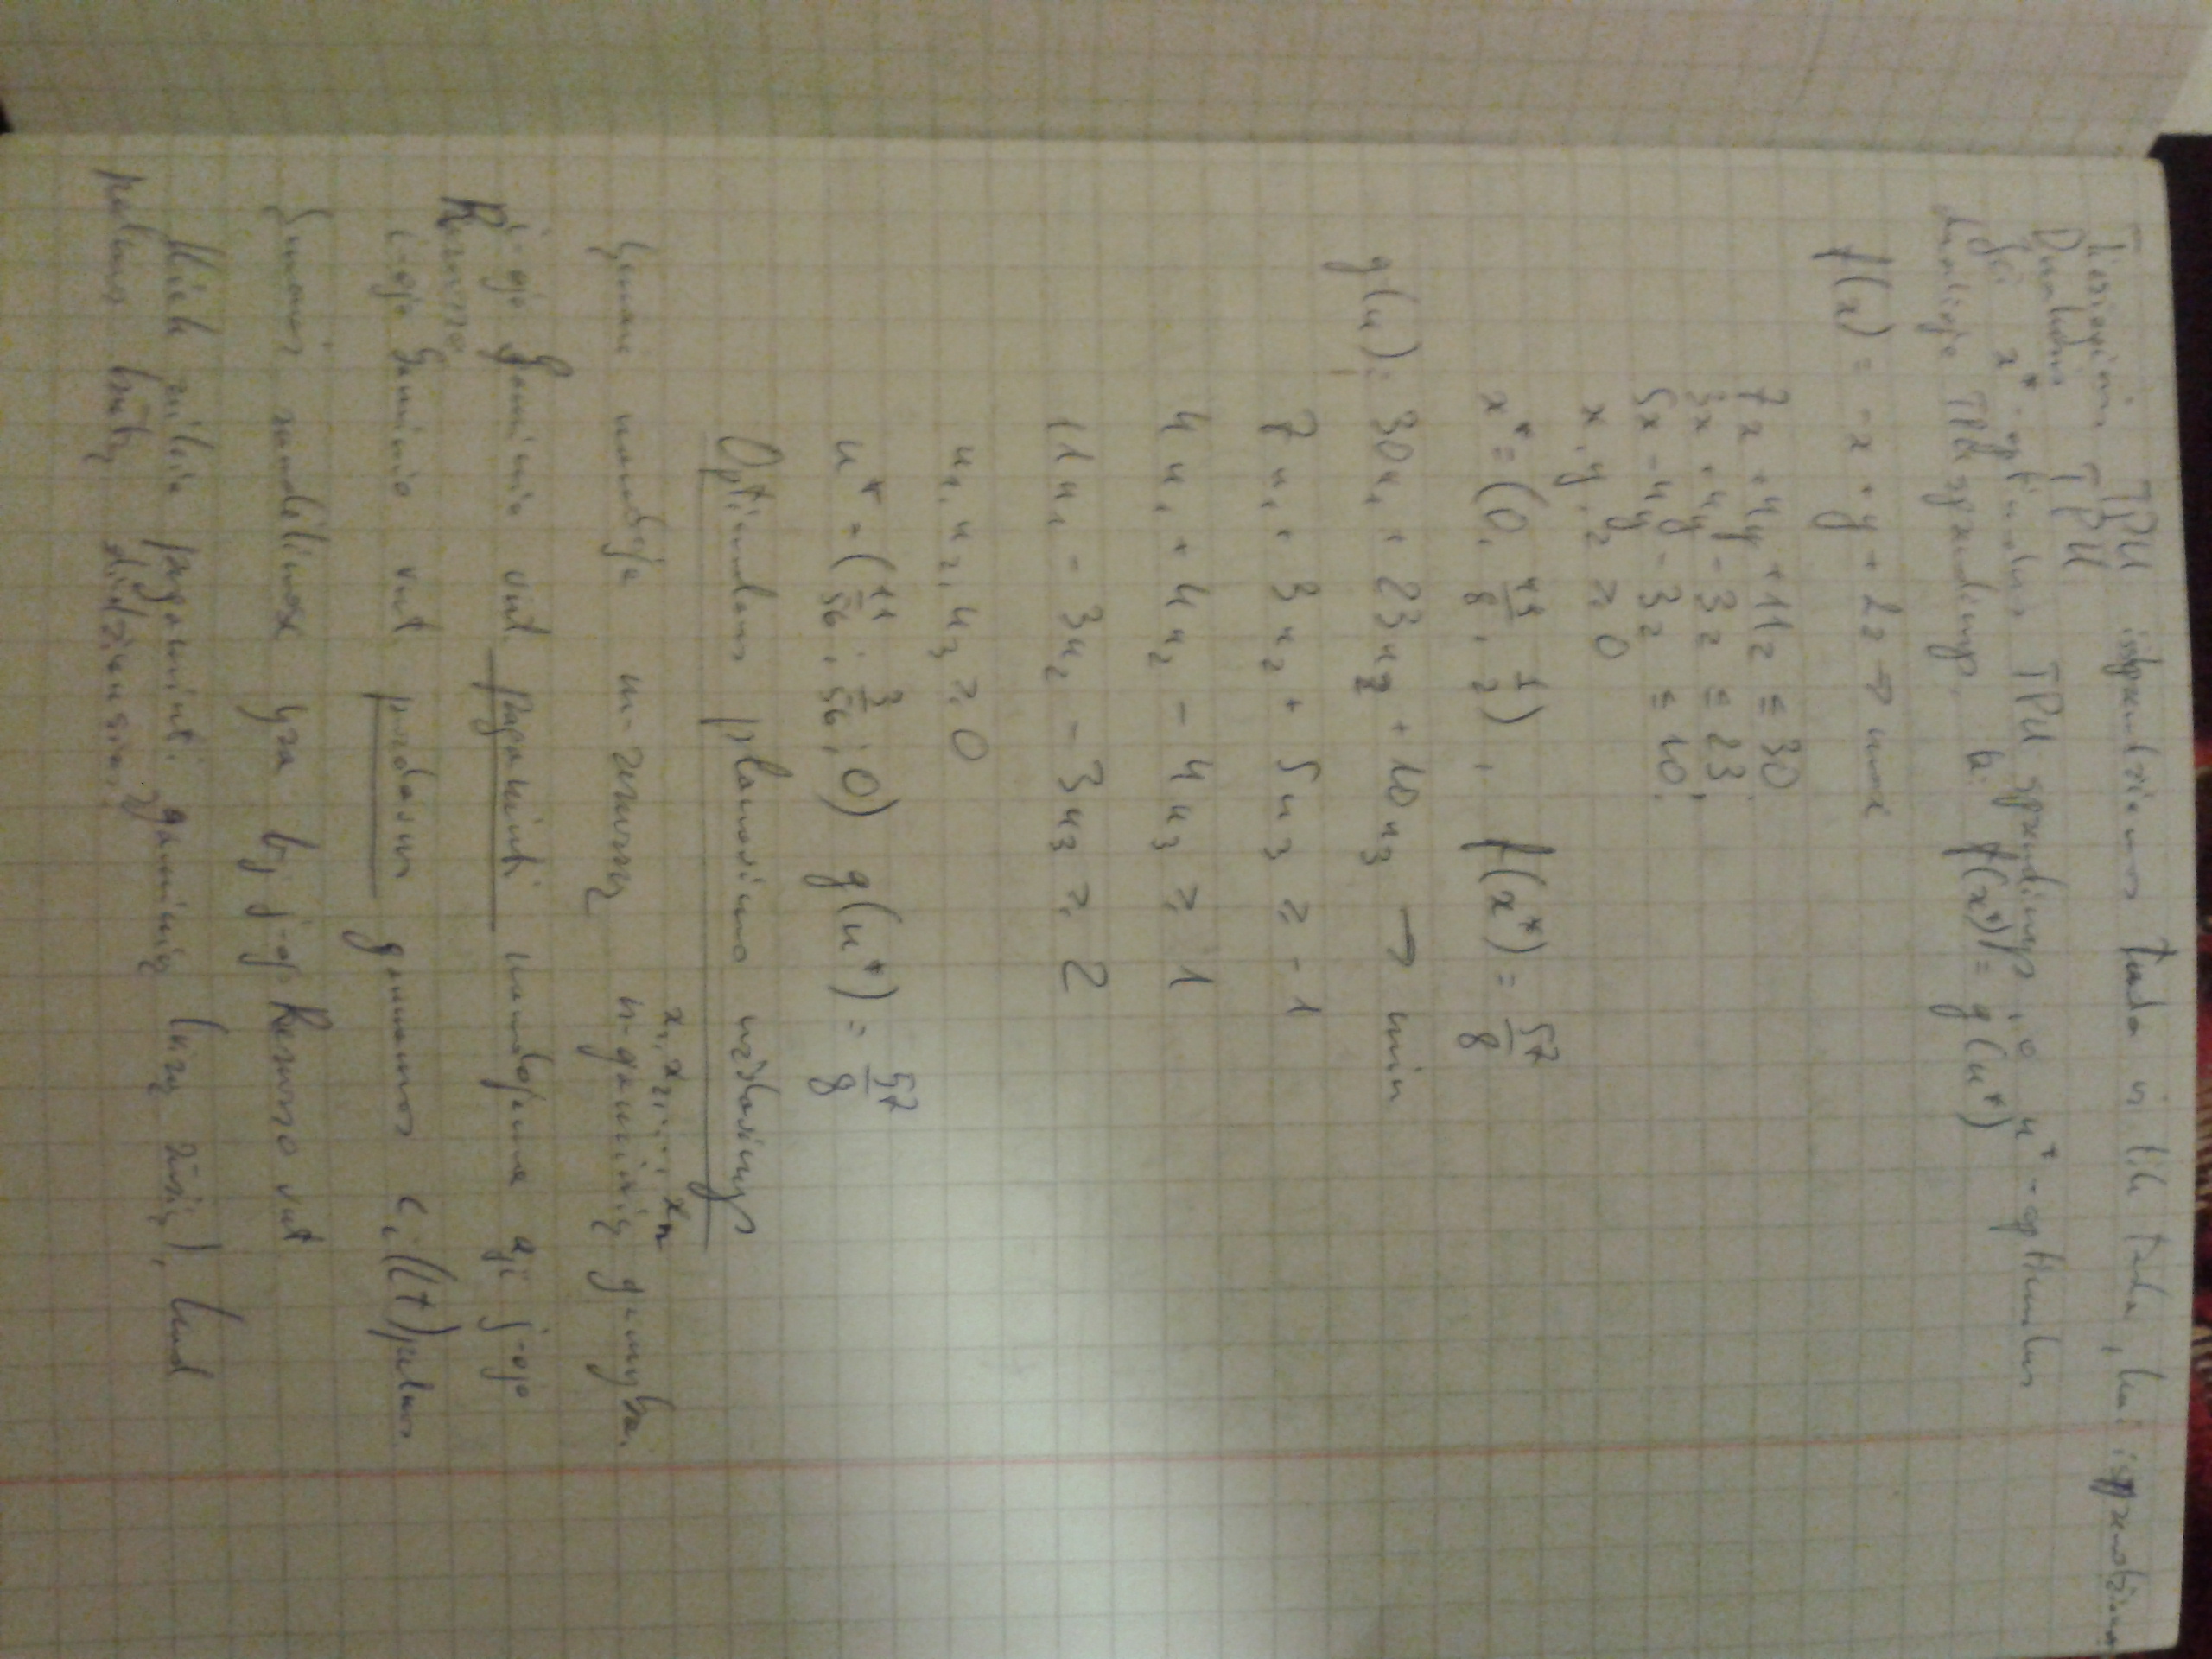 Tiesioginis TPU išsprendžiamas tada ir tik tada, kai išsprendžiamas
Dualusis TPU
Jei x* - optimalus TPU sprendinys, o u* - optimalus
dualiojo TPU sprendinys, tai f(x*) = g(u*)
f(x) = -x + y + 2z → max
7x + 4y + 11z ≤ 30,
3x + 4y - 3z ≤ 23,
5x - 4y - 3z ≤ 10.
x, y, z ≥ 0
x* = (0, 49/8, 1/2), f(x*) = 57/8
g(u): 30u₁ + 23u₂ + 10u₃ → min
7u₁ + 3u₂ + 5u₃ ≥ -1
4u₁ + 4u₂ - 4u₃ ≥ 1
11u₁ - 3u₂ - 3u₃ ≥ 2
u₁, u₂, u₃ ≥ 0
u* = (11/56; 3/56; 0) g(u*) = 57/8
Optimalaus planavimo uždavinys
x₁, x₂, ..., xₙ
Įmonė naudoja m-resursų n-gaminių gamybai.
i-ojo Gaminio vnt. pagaminti naudojama aⱼᵢ j-ojo
Resurso
i-ojo Gaminio vnt. pardavus gaunamas cᵢ (Lt) pelnas
Įmonės sandėliuose yra bⱼ j-ojo Resurso vnt
Kiek reikia pagaminti gaminių (visų rūšių), kad
pelnas būtų didžiausias?